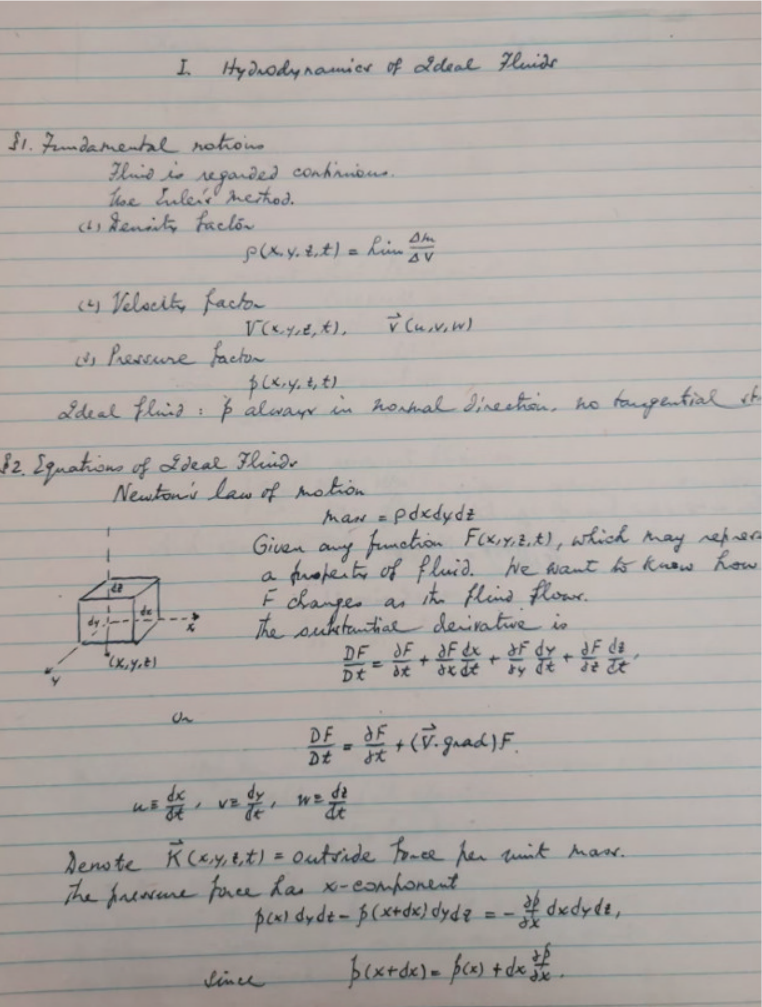 I. Hydrodynamics of Ideal Fluids
§1. Fundamental notions
Fluid is regarded continuous.
Use Euler's Method.
(1) Density factor
ρ(x,y,z,t) = lim Δm/ΔV
(2) Velocity factor
V(x,y,z,t), v⃗(u,v,w)
(3) Pressure factor
p(x,y,z,t)
Ideal fluid : p always in normal direction, no tangential st
§2. Equations of Ideal Fluids
Newton's law of motion
mass = ρdxdydz
Given any function F(x,y,z,t), which may repres
a property of fluid. We want to know how
F changes as the fluid flows.
The substantial derivative is
DF/Dt = ∂F/∂t + ∂F/∂x dx/dt + ∂F/∂y dy/dt + ∂F/∂z dz/dt,
dz
dy dx
x
(x,y,z)
y
or
DF/Dt = ∂F/∂t + (V⃗·grad)F.
u ≡ dx/dt, v ≡ dy/dt, w ≡ dz/dt
Denote K⃗(x,y,z,t) = outside force per unit mass.
The pressure force has x-component
p(x) dydz − p(x+dx) dydz = − ∂p/∂x dxdydz,
since p(x+dx) = p(x) + dx ∂p/∂x.